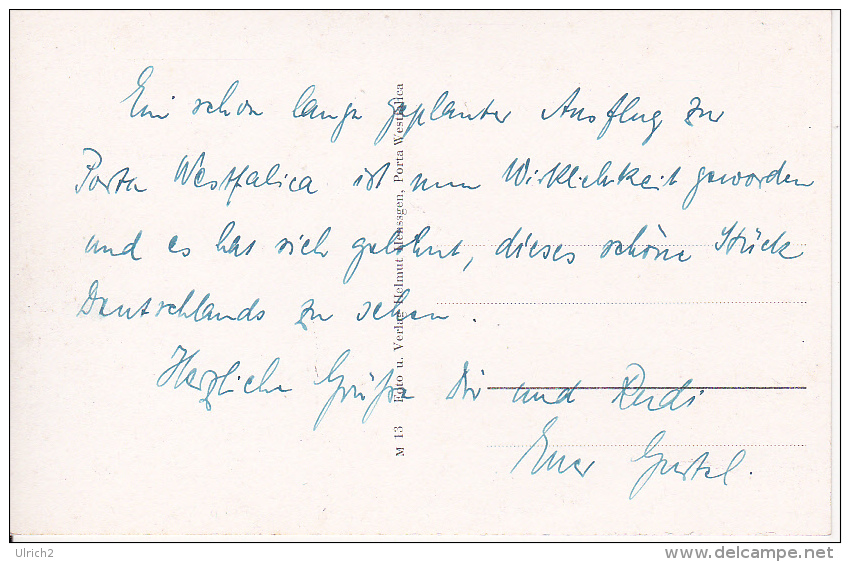 Ein schon lange geplanter Ausflug zur
Porta Westfalica ist nun Wirklichkeit geworden
und es hat sich gelohnt, dieses schöne Stück
Deutschlands zu sehen.
Herzliche Grüße Dir und Rudi
Euer
M 13 Foto u. Verlag Helmut Menssgen, Porta Westfalica
Ulrich2
www.delcampe.net